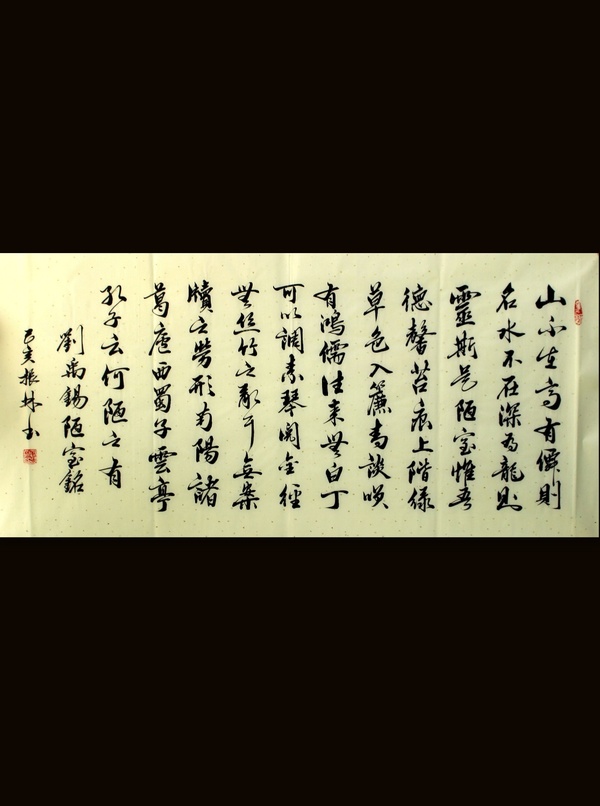 山不在高有僊則
名水不在深有龍則
靈斯是陋室惟吾
德馨苔痕上階绿
草色入簾青談咲
有鴻儒往来無白丁
可以調素琴閱金經
無丝竹之亂耳無案
牘之勞形南陽諸
葛廬西蜀子雲亭
孔子云何陋之有
劉禹錫陋室銘
己亥振林书